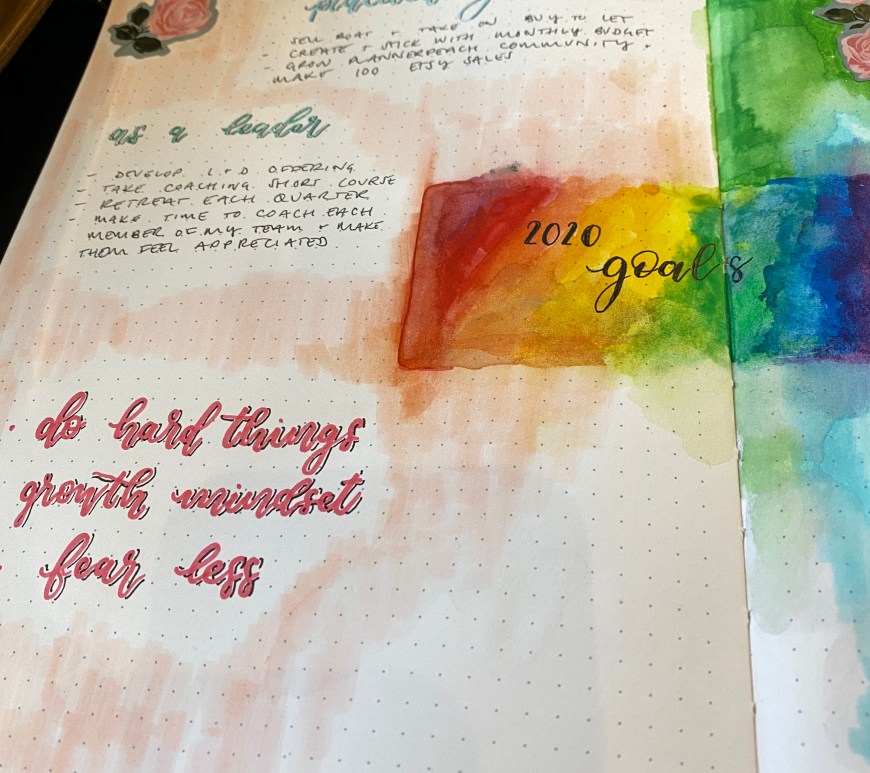 - SELL BOAT + TAKE ON BUY TO LET
- CREATE + STICK WITH MONTHLY BUDGET
- GROW PLANNERPEACH COMMUNITY +
MAKE 100 ETSY SALES
as a leader
- DEVELOP L+D OFFERING
- TAKE COACHING SHORT COURSE
- RETREAT EACH QUARTER
- MAKE TIME TO COACH EACH
MEMBER OF MY TEAM + MAKE
THEM FEEL APPRECIATED
2020
goals
do hard things
growth mindset
fear less